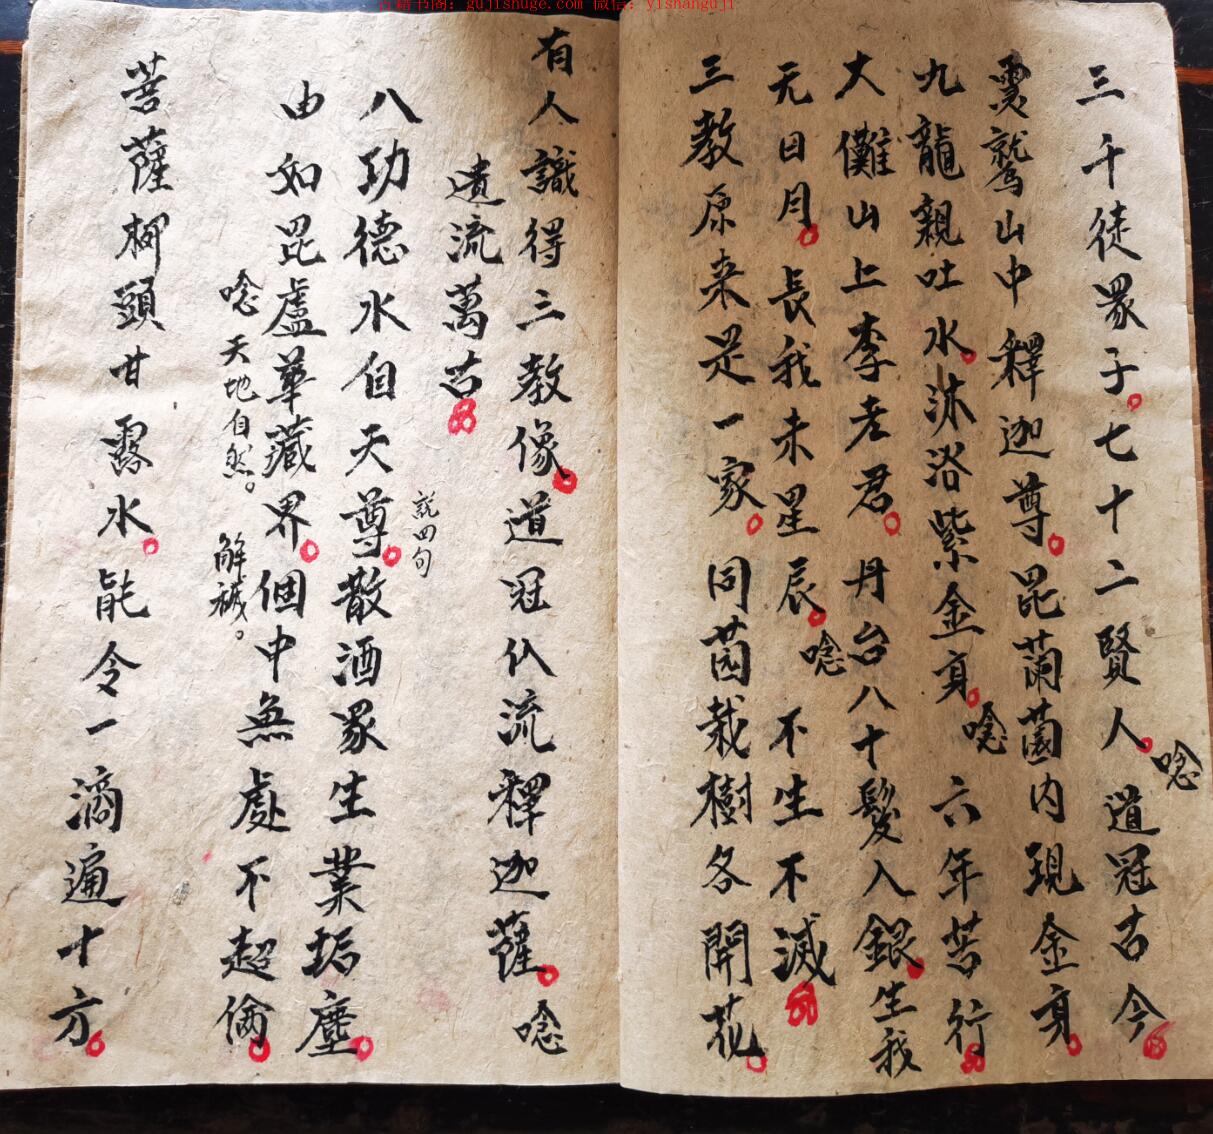 古籍书阁：gujishuge.com 微信：yishanguji
三千徒眾子。七十二賢人。唸 道冠古今
灵鷲山中釋迦尊。毘蘭園内現金身。
九龍親吐水。沐浴紫金身。唸 六年苦行
大儺山上李老君。丹台八十髮入銀。生我
无日月。長我未星辰。唸 不生不滅
三教原来是一家。同茵栽樹各開花。
有人識得三教像。道冠仏流釋迦薩。唸
遺流萬古
說四句
八功德水自天尊。散酒眾生業垢塵。
由如毘盧華藏界。個中無處不超倫。
唸天地自然。解穢。
菩薩柳頭甘露水。能令一滴遍十方。